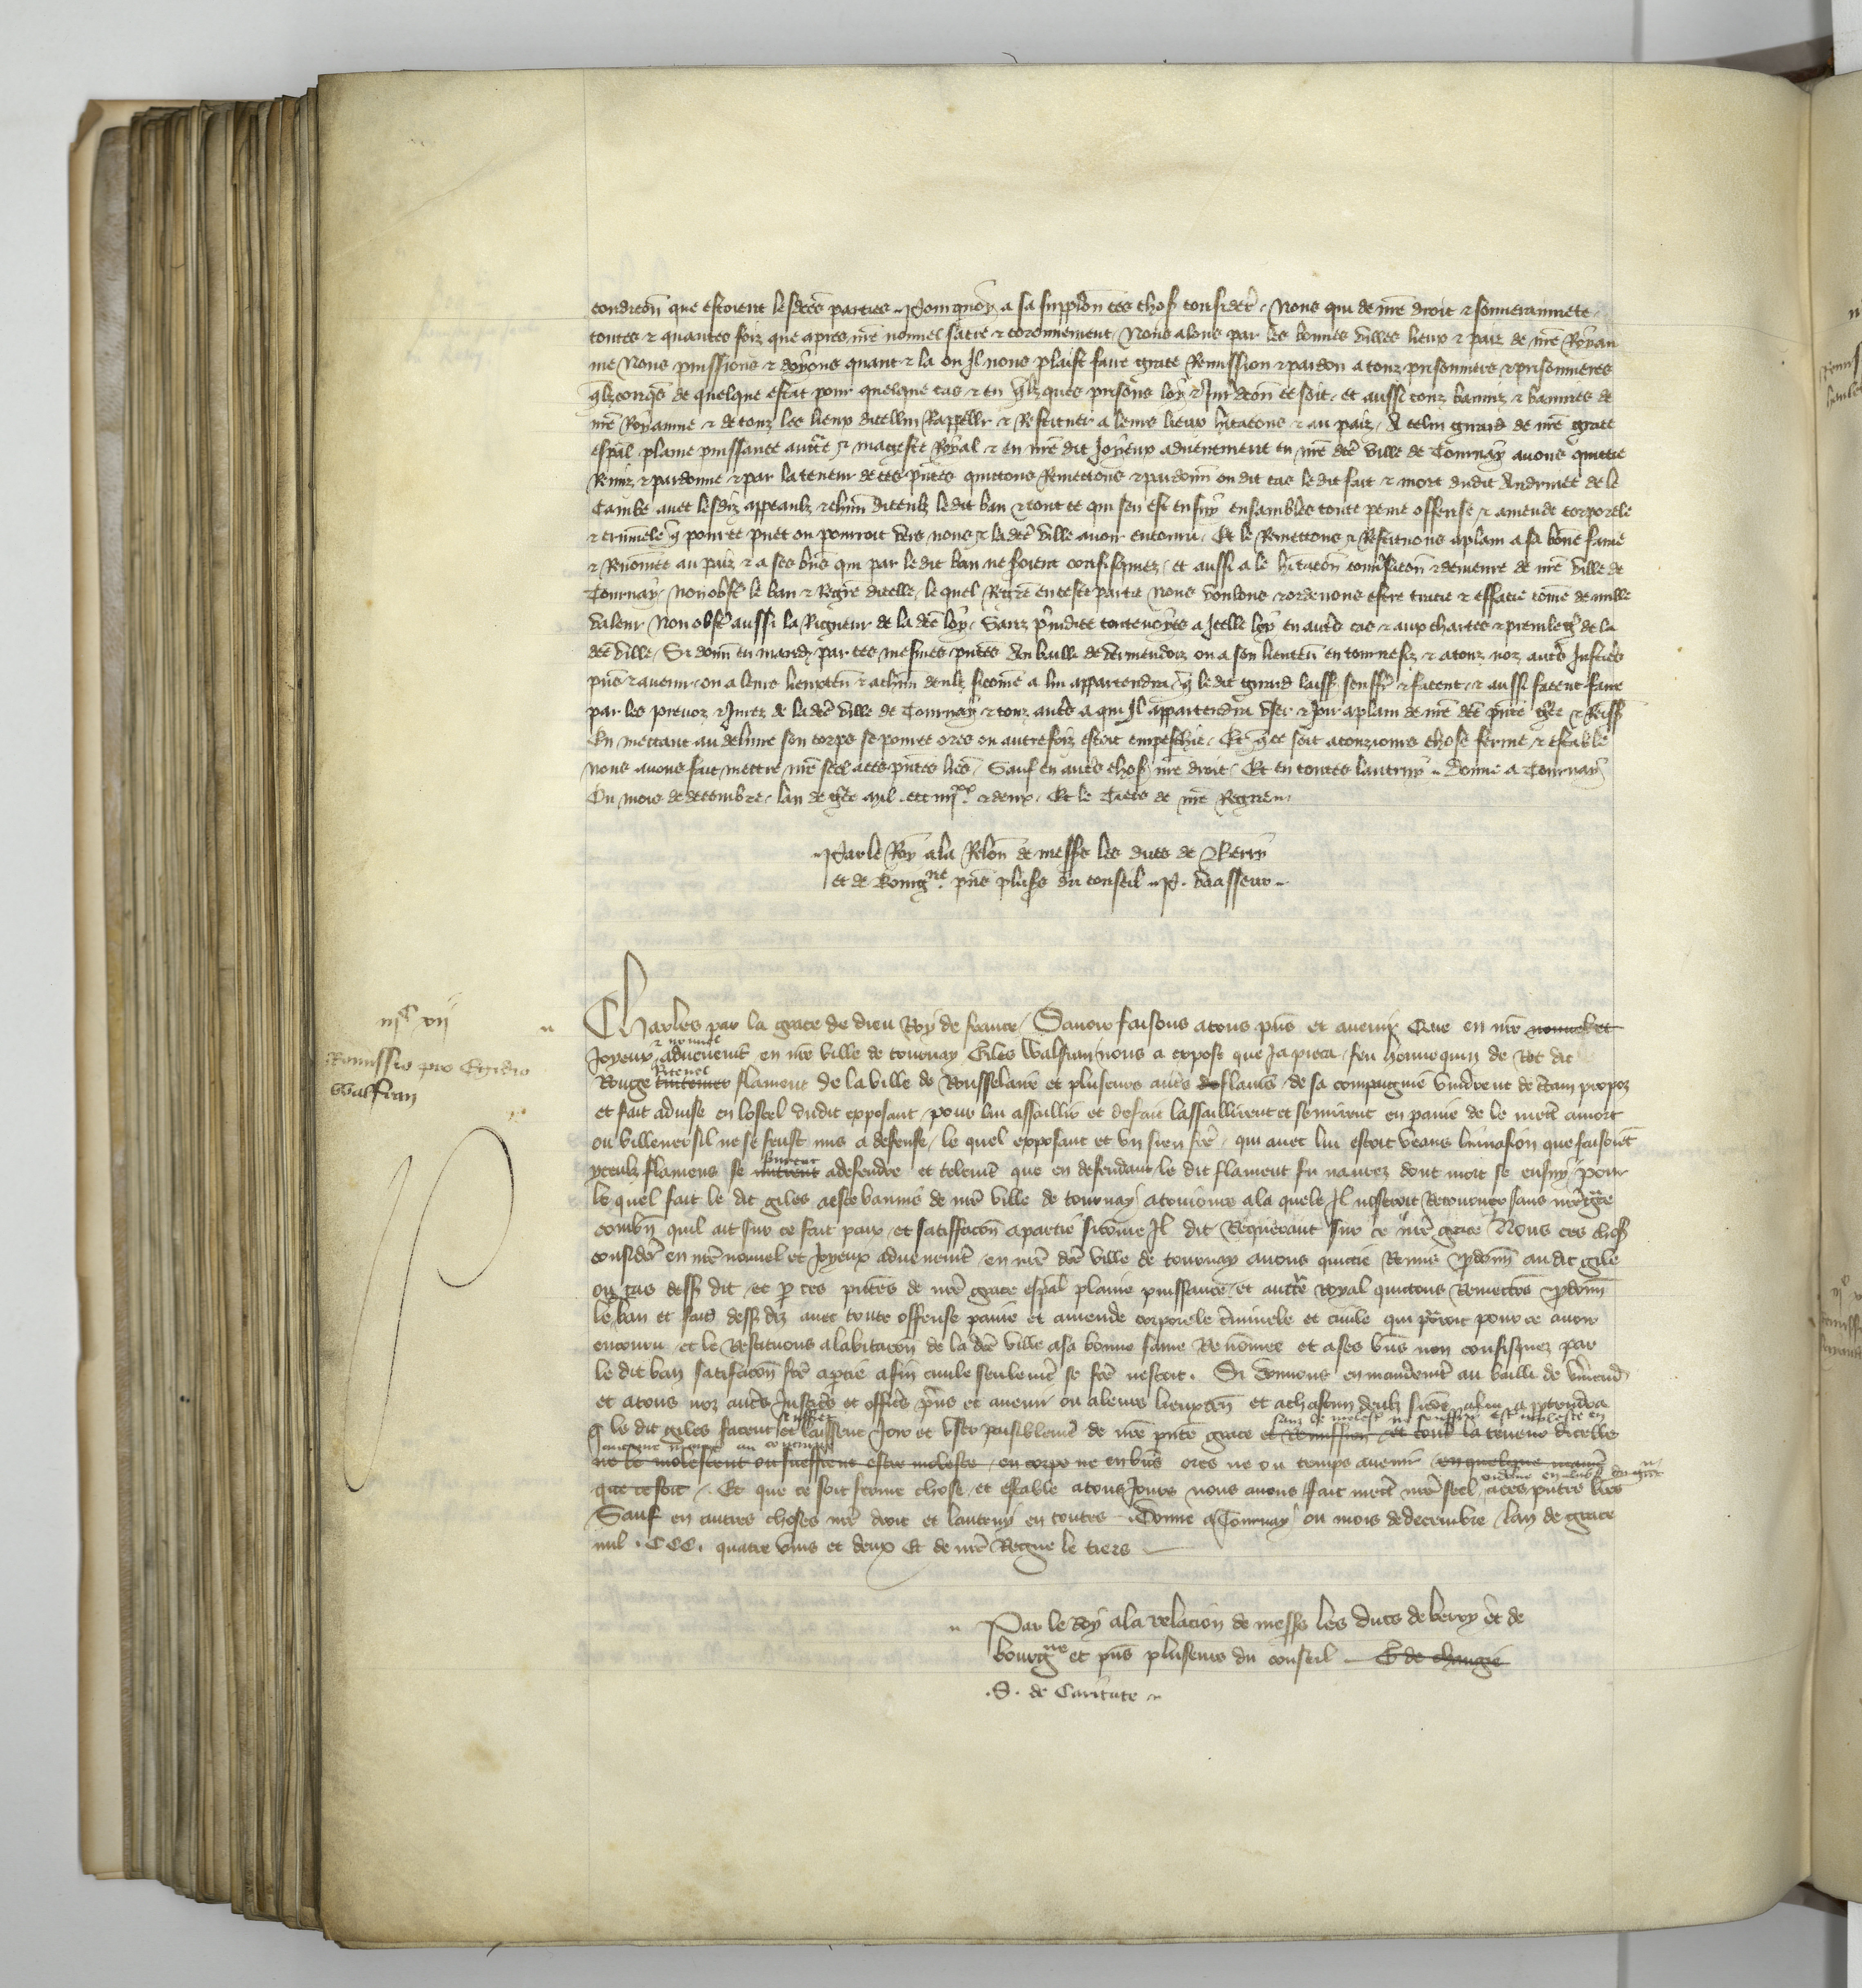 condicion que estoient lesdictes parties. Pourquoy a sa supplicacion ces choses considerees. Nous qui de nostre droit et souverainnete
toutes et quantes foiz que apres nostre nouvel sacre et coronnement Nous alons par les bonnes villes lieux et paiz de nostre Royau
me Nous puissions et doyons quant et la ou Il nous plaist faire grace Remission et pardon a touz prisonniers et prisonnieres
quelzconques de quelque estat pour quelque cas et en quelzques prisons loy et Juridicion ce soit. et aussi touz banniz et bannies de
nostre Royaume et de touz les lieux dicellui Rappeller et Restituer a leurs lieux habitacions et au paiz. A celui girard de nostre grace
especial plaine puissance auctorite et mageste Royal et en nostre dit Joyeux advenement en nostre dicte ville de Tournay avons quittie
Remiz et pardonne et par la teneur de ces presentes quictons Remectons et pardonnons ou dit cas le dit fait et mort dudit Andrieu de le
Cambe avec lesdiz appeaulx et chascun diceulz ledit ban et tout ce qui sen est ensuy ensambles toute peine offense et amende corporele
et criminele que pour ce puet ou pourroit vers nous et ladicte ville avoir encouru. Et le Remettons et Restituons a plain a sa bonne fame
et Renommee au paiz et a ses biens qui par le dit ban ne soient confisquez, et aussi a le habitacion conversacion et demeure de nostre ville de
Tournay, Nonobstant le ban et Registre dicelle, le quel Registre en ceste partie Nous voulons et ordenons estre tracie et effacie comme de nulle
valeur Nonobstant aussi la Rigueur de la dicte loy, Sanz preiudice toutevoyes a Icelle loy en autres cas et aux chartes et previleges de la
dicte ville. Si donnons en mandement par ces mesmes presentes Au bailli de vermendoiz ou a son lieutenant en tournesiz et a touz noz autres Justiciers
presens et avenir, ou a leurs lieuxtenans et a chascun deulz sicomme a lui appartendra, que le dit girard laissent souffrir et facent, et aussi facent faire
par les prevoz et Jurez de ladicte ville de Tournay et touz autres a qui Il appartendra user et Joir a plain de nostre dicte presente grace et Remission
En mettant au delivre son corps se pour ce ores ou autrefoiz estoit empeschie. Et que ce soit a touzjours chose ferme et estable
nous avons fait mettre nostre seel a ces presentes lettres. Sauf en autres choses nostre droit. Et en toutes lautruy. Donne a Tournay
Ou mois de decembre. lan de grace mil. ccc iiiixx et deux. Et le Tiers de nostre Regne.
Par le Roy a la Relacion de messires les ducs de Berry
et de Bourgne presens plusieurs du conseil. P. vaasseur.
iiic vii
Remissio pro Egidio
Walfran
Charles par la grace de dieu Roy de france, Savoir faisons a tous presens et avenir Que en nostre nouvel et
Joyeux et nouvel advenement en nostre ville de tournay Giles Walfran nous a expose que Ja pieca, feu hennequin de Rot dit
Rouge flament de la ville de Rousselare et pluseurs autres de flamens de sa compaignie vindrent de certain propoz
et fait advise en lostel dudit exposant pour lui assaillir et de fait lassaillirent et se mirent en paine de le mectre a mort
ou villener sil ne se feust mis a defense, le quel exposant et un sien frere qui avec lui estoit veans linvasion que faisoient
yceulz flamens se mirent a defendre et telement que en defendant le dit flament fu navrez dont mort se ensuy, pour
le quel fait le dit giles a este bannis de nostre ville de tournay a tousiours a la quele Il noseroit Retourner sans nostre grace
combien quil ait sur ce fait paix et satisfacion a partie sicomme Il dit Requerant sur ce nostre grace Nous ces choses
considerees en nostre nouvel et Joyeux advenement en nostre dicte ville de tournay avons quictie Remis et pardonne audit gile
ou cas dessus dit et par ces presentes de nostre grace especial plaine puissance et auctorite royal quictons Remectons et pardonnons
le ban et fait dessus diz avec toute offense paine et amende corporele criminele et civile qui pourroit pour ce avoir
encouru et le Restituons a labitacion de la dicte ville a sa bonne fame Renommee et a ses biens non confisquez par
le dit ban satisfacion faicte a partie a fin civile seulement se faicte nestoit. Si donnons en mandement au bailli de vermendois
et a tous noz autres Justiciers et officiers presens et avenir ou a leurs lieuxtenans et a chascun deulz sicomme a lui appartendra
que le dit giles facent seuffrent et laissent Joir et user paisiblement de nostre presente grace et Remission et tout la teneur dicelle
ne le molestent ou seuffrent estre moleste, en corps ne en biens ores ne ou temps avenir en quelque maniere
que ce soit. Et que ce soit ferme chose et estable a tous Jours nous avons fait mectre nostre seel a ces presentes lettres
Sauf en autres choses nostre droit et lautruy en toutes. Donne a Tournay ou mois de decembre lan de grace
mil. CCC. quatre vins et deux Et de nostre Regne le tiers
Par le Roy a la relacion de messires les ducs de berry et de
bourgne et presens pluseurs du conseil. G de changie
.S. de Caritate